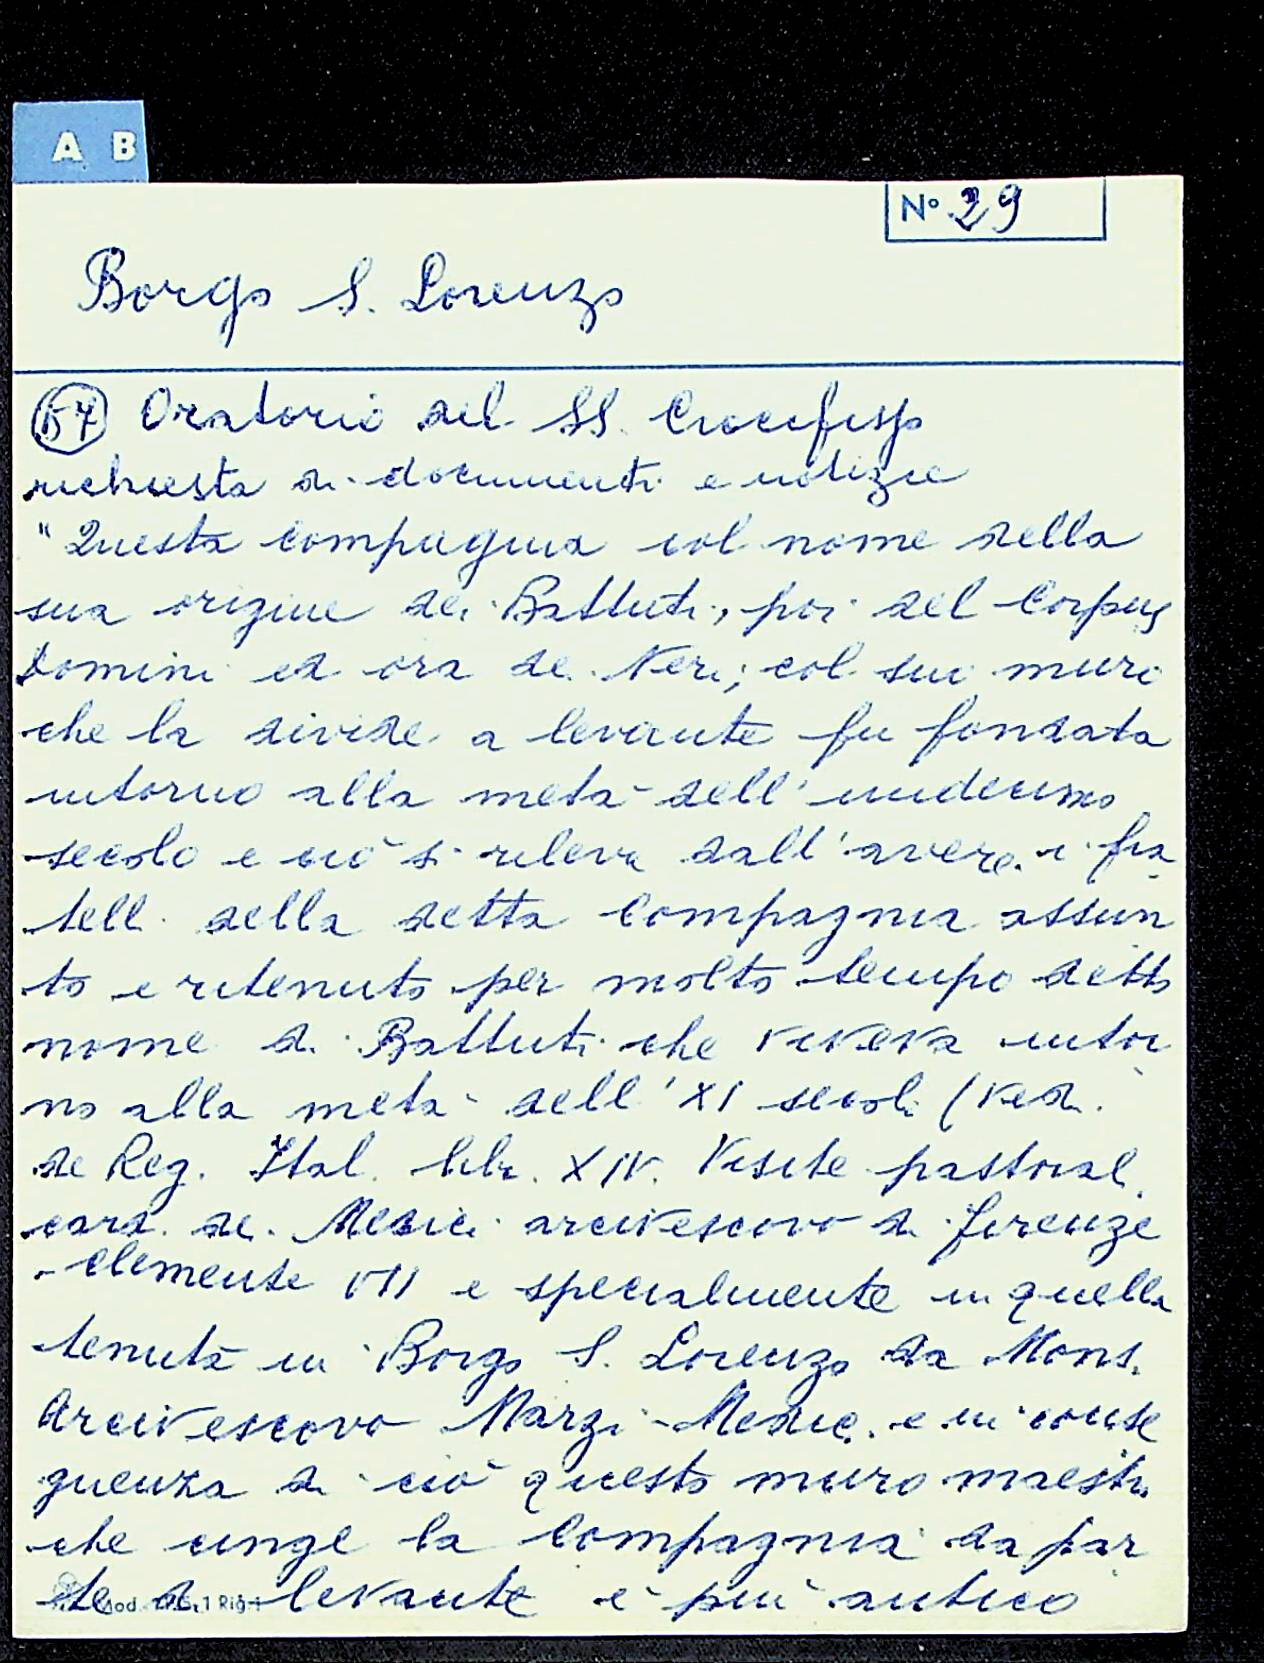 A B
N° 29
Borgo S. Lorenzo
57 Oratorio del SS. Crocifisso
richiesta di documenti e notizie
"Questa compagnia col nome della
sua origine dei Battuti, poi del Corpus
Domini ed ora de Neri; col suo muro
che la divide a levante fu fondata
intorno alla metà dell'undecimo
secolo e ciò si rileva dall'avere i fra
telli della detta compagnia assun
to e ritenuto per molto tempo detto
nome di Battuti che viveva intor
no alla metà dell'XI secoli (Vedi
de Reg. Ital. libr. XIV. Visite pastorali
card. de Medici arcivescovo di Firenze
- Clemente VII e specialmente in quella
tenuta in Borgo S. Lorenzo da Mons.
Arcivescovo Marzi-Medici e in conse
guenza di ciò questo muro maestro
che cinge la Compagnia da par
te di levante è più antico
Mod. 1 Rig